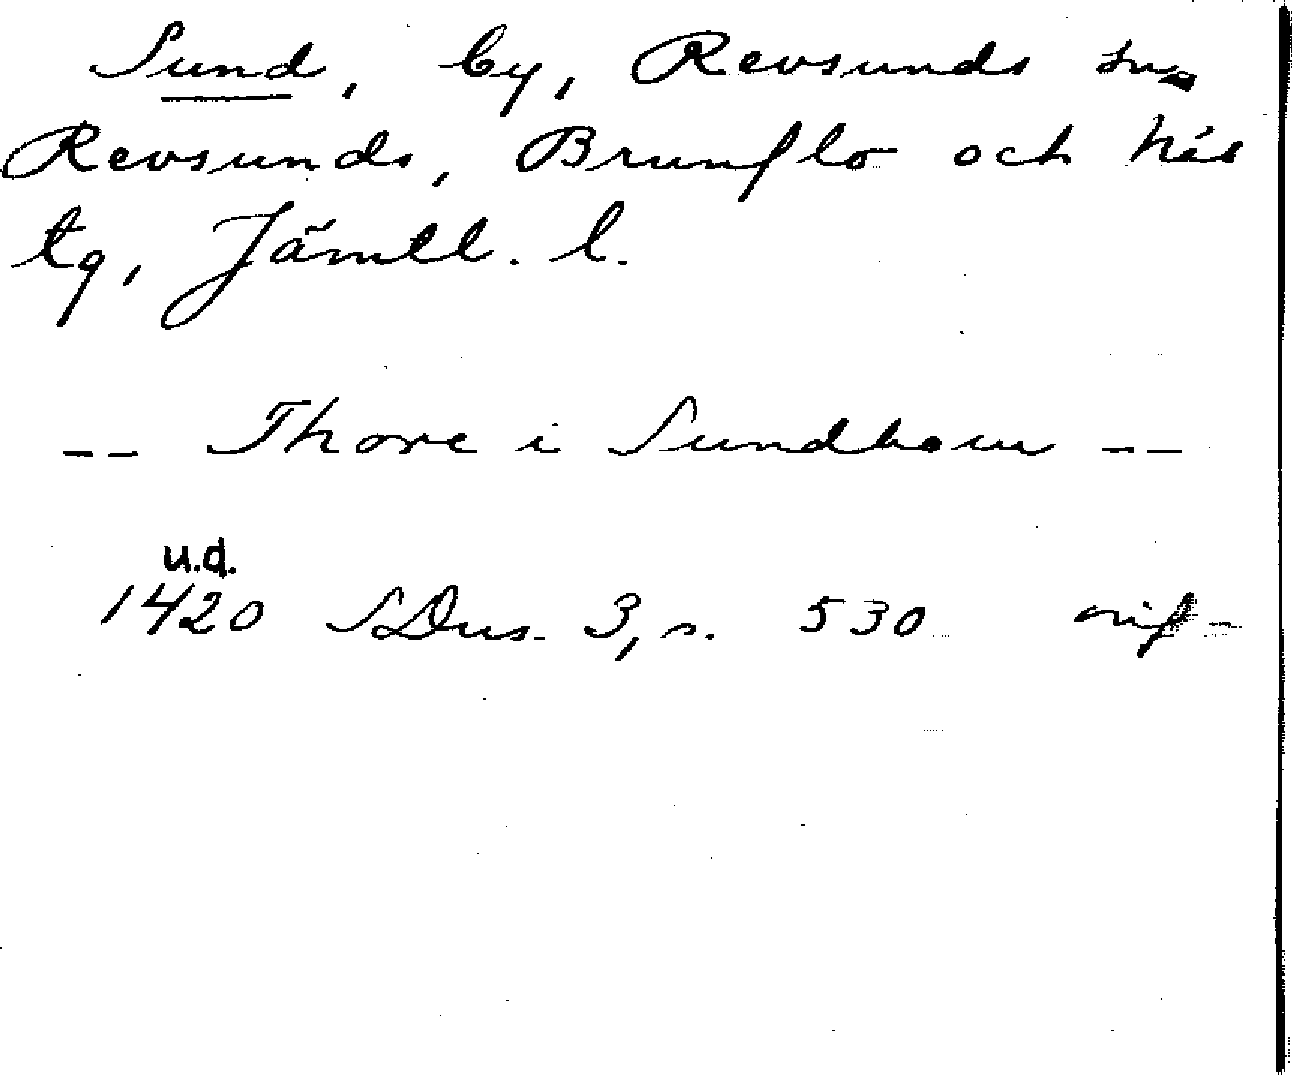 Sund, by, Revsunds sn
Revsunds, Brunflo och Näs
tg, Jämtl. l.
-- Thore i Sundhom --
u.d.
1420 SDns. 3, s. 530 orig.